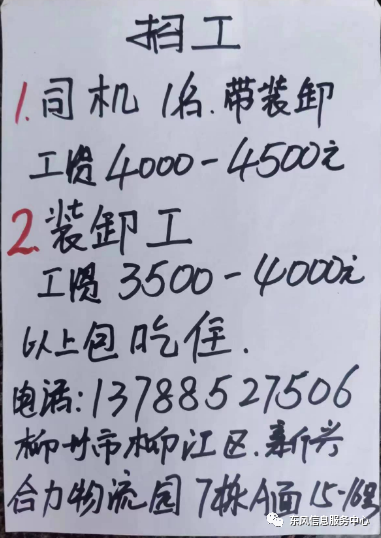 招工
1.司机1名.带装卸
工资4000-4500元
2.装卸工
工资3500-4000元
以上包吃住.
电话:13788527506
柳州市柳江区.新兴
合力物流园7栋A面15-16号
东风信息服务中心